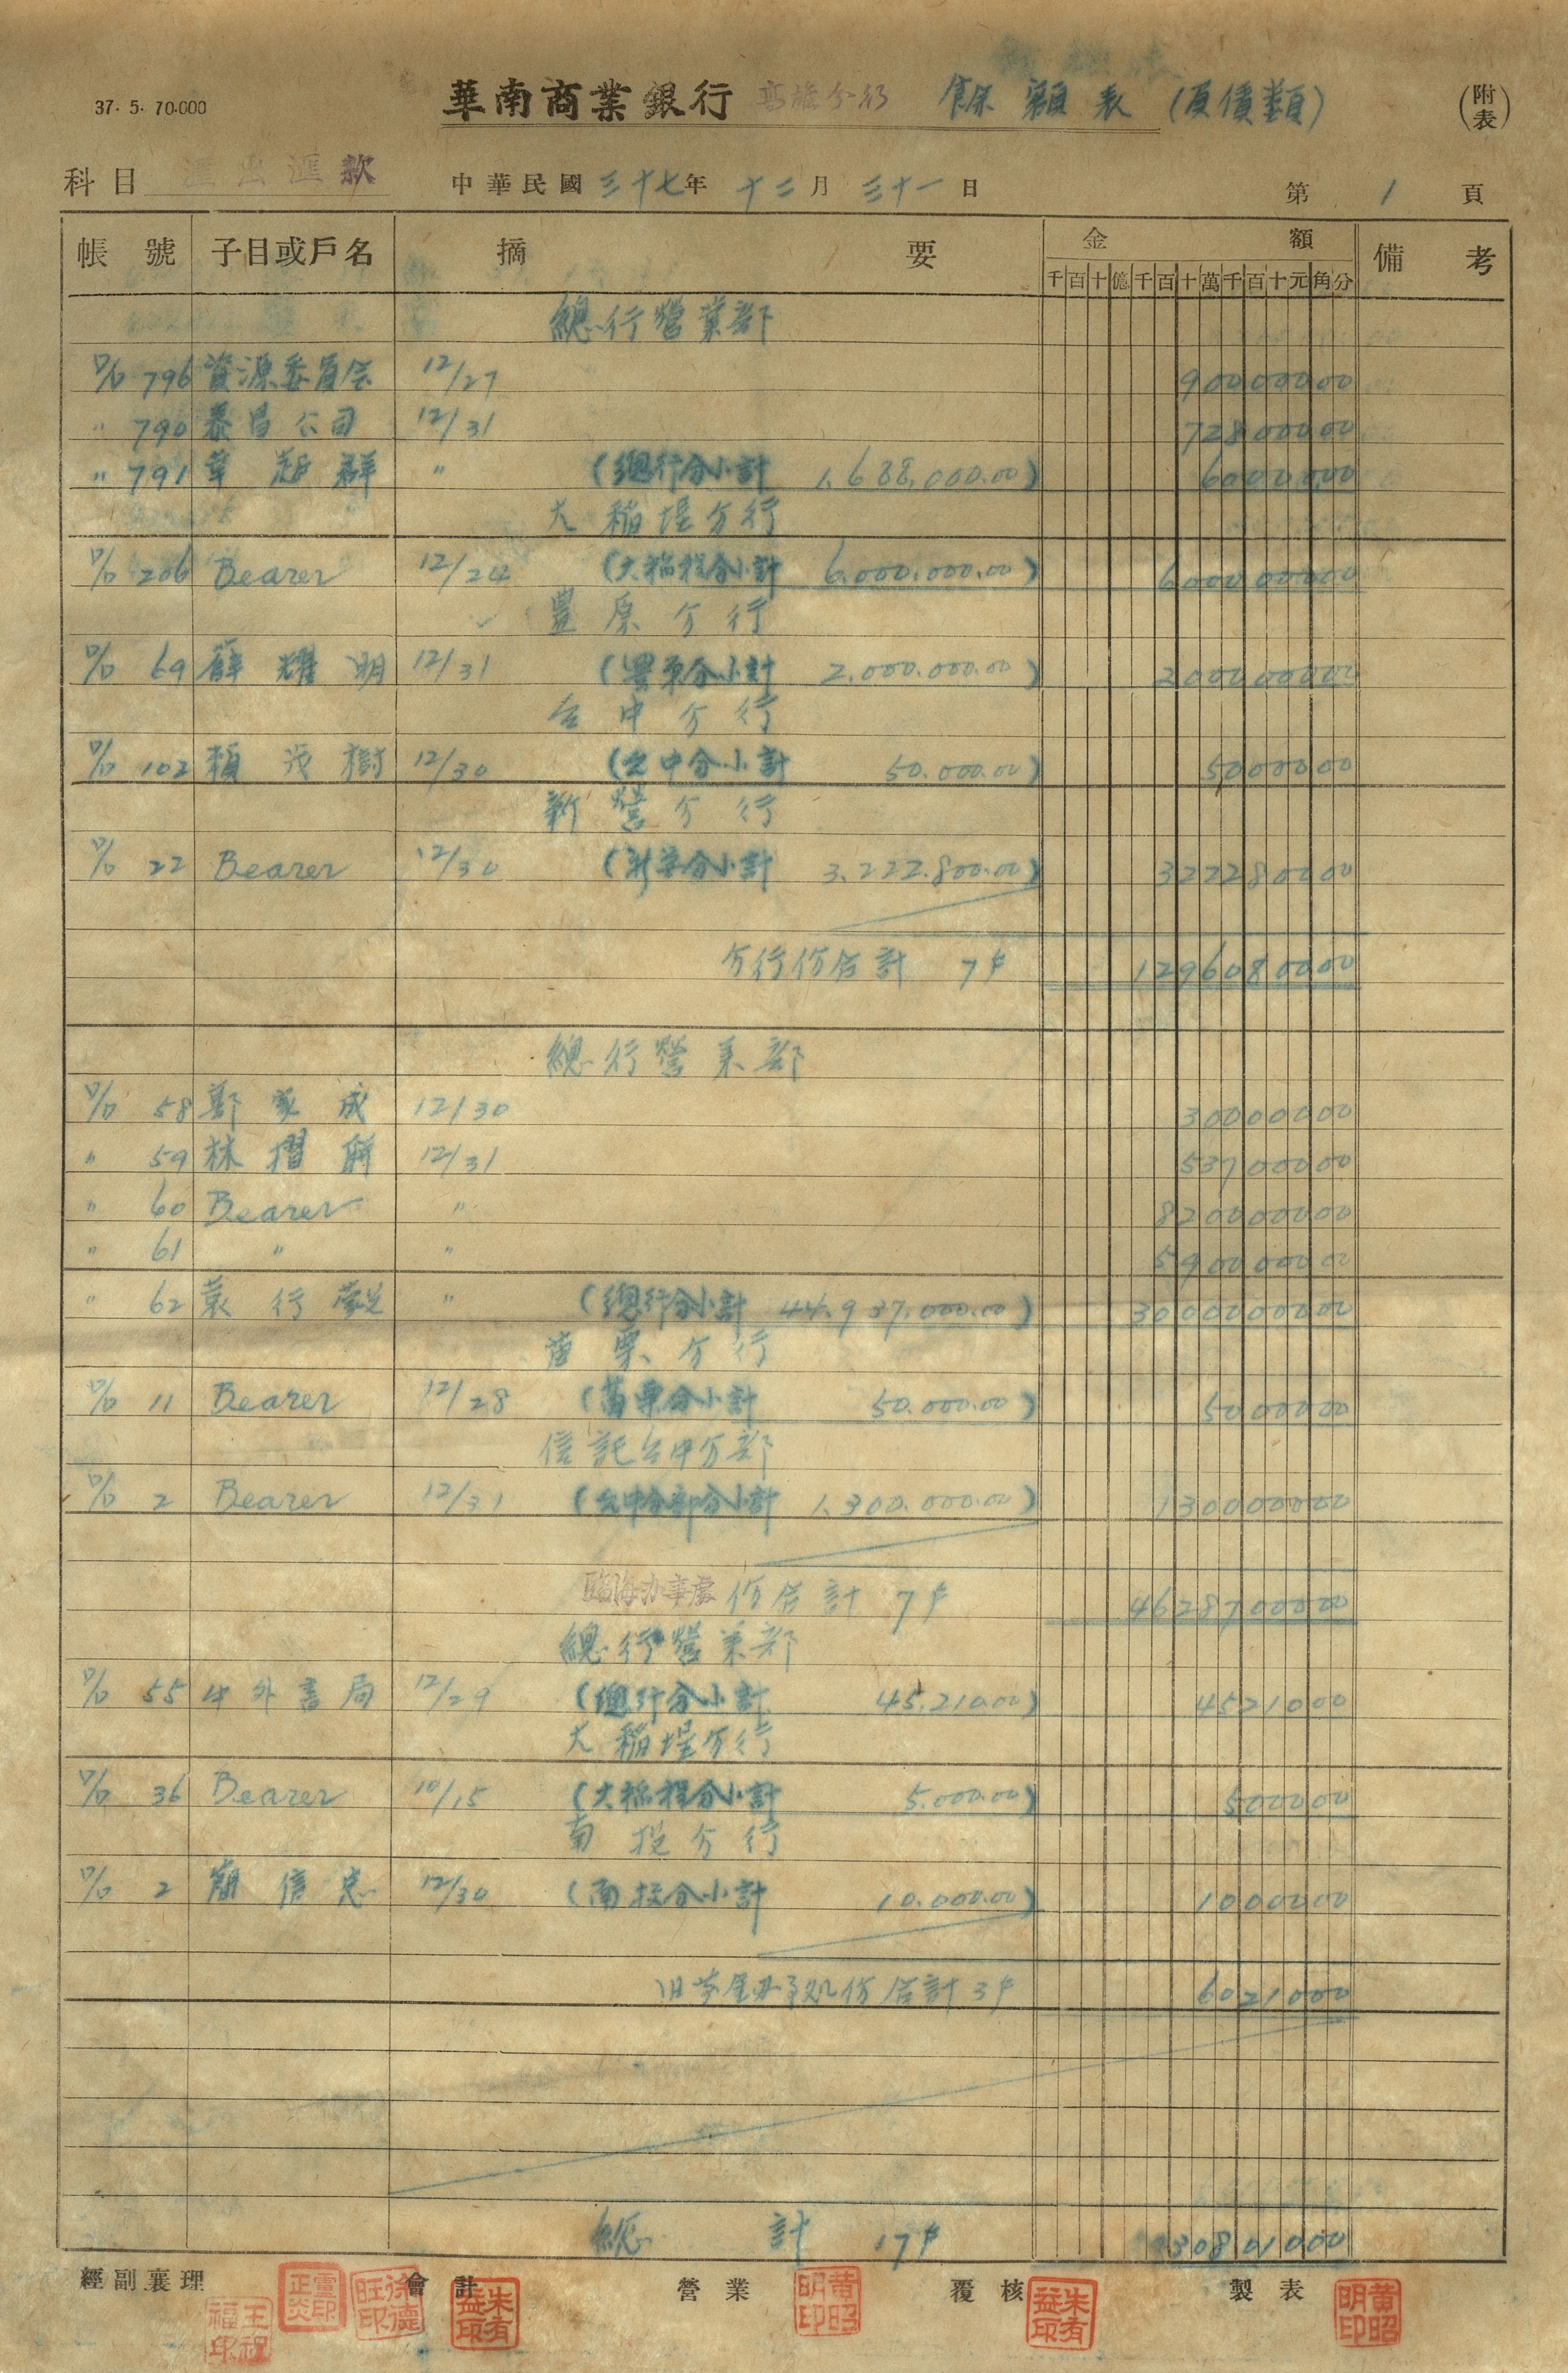 37. 5. 70.000
華南商業銀行 高雄分行 餘額表 (負債類)
(附表)
科目 匯出匯款 中華民國三十七年 十二月 三十一日 第 1 頁
帳號 子目或戶名 摘要 金額 備考
千百十億千百十萬千百十元角分
總行營業部
D/D 796 資源委員會 12/27 90000000
〃 790 泰昌公司 12/31 72800000
〃 791 〃 (總行分小計 1,688,000.00) 6000000
大稻埕分行
D/D 206 Bearer 12/24 (大稻埕分小計 6.000.000.00) 600000000
豐原分行
D/D 69 薛耀明 12/31 (豐原分小計 2.000.000.00) 200000000
台中分行
D/D 102 賴茂樹 12/30 (台中分小計 50.000.00) 5000000
新營分行
D/D 22 Bearer 12/30 (新營分小計 3.222.800.00) 322280000
分行份合計 7件 1296080000
總行營業部
D/D 58 鄭家成 12/30 30000000
〃 59 林摺 12/31 53700000
〃 60 Bearer 〃 820000000
〃 61 〃 〃 590000000
〃 62 行 〃 (總行分小計 44.937.000.00) 3000000000
苗栗分行
D/D 11 Bearer 12/28 (苗栗分小計 50.000.00) 5000000
信託台中分部
D/D 2 Bearer 12/31 (台中分部分小計 1.300.000.00) 130000000
臨海办事處 份合計 7件 4628700000
總行營業部
D/D 55 中外書局 12/29 (總行分小計 45.210.00) 4521000
大稻埕分行
D/D 36 Bearer 10/15 (大稻埕分小計 5.000.00) 500000
南投分行
D/D 2 簡信忠 12/30 (南投分小計 10.000.00) 1000000
份合計 3件 6021000
總計 17件
經副襄理 會計 營業 覆核 製表
王祝福印
徐德旺印
朱有益印
黃昭明印
朱有益印
黃昭明印